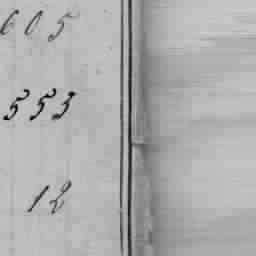 605
553
12